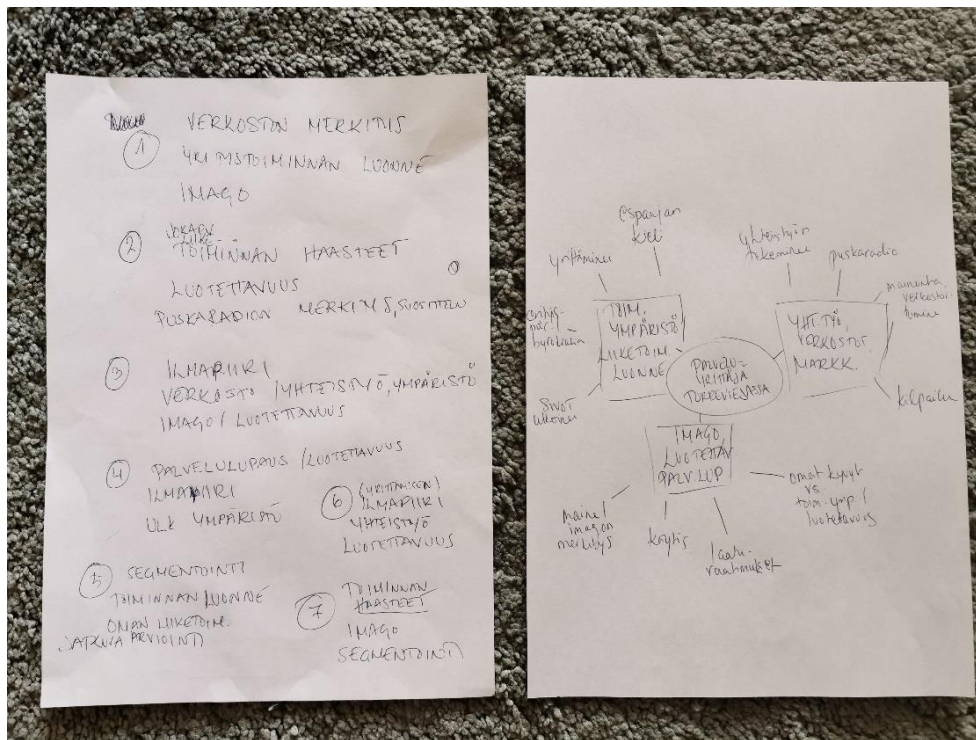 VERKOSTON MERKITYS
1 YRITYSTOIMINNAN LUONNE
IMAGO
2
TOIMINNAN HAASTEET
LUOTETTAVUUS
PUSKARADION MERKITYS, SUOSITTELU
3 ILMAPIIRI
VERKOSTO / YHTEISTYÖ, YMPÄRISTÖ
IMAGO / LUOTETTAVUUS
4 PALVELULUPAUS / LUOTETTAVUUS
ILMAPIIRI
ULK YMPÄRISTÖ
5 SEGMENTOINTI
TOIMINNAN LUONNE
OMAN LIIKETOIM.
JATKUVA ARVIOINTI
6 (YRITTÄMISEN)
ILMAPIIRI
YHTEISTYÖ
LUOTETTAVUUS
7 TOIMINNAN
HAASTEET
IMAGO
SEGMENTOINTI
espanjan
kieli
yrittäminen
byrokratia
TOIM.
YMPÄRISTÖ
LIIKETOIM.
LUONNE
PALVELU-
YRITTÄJÄ
TORREVIEJASSA
yhteistyön
tekeminen
puskaradio
mainonta,
verkostoi-
tuminen
YHT.TYÖ,
VERKOSTOT
MARKK.
kilpailu
IMAGO,
LUOTETTAV
PALV.LUP
maine/
imagon
merkitys
laatu-
vaatimukset
omat kyvyt
vs
toim.ymp /
luotettavuus